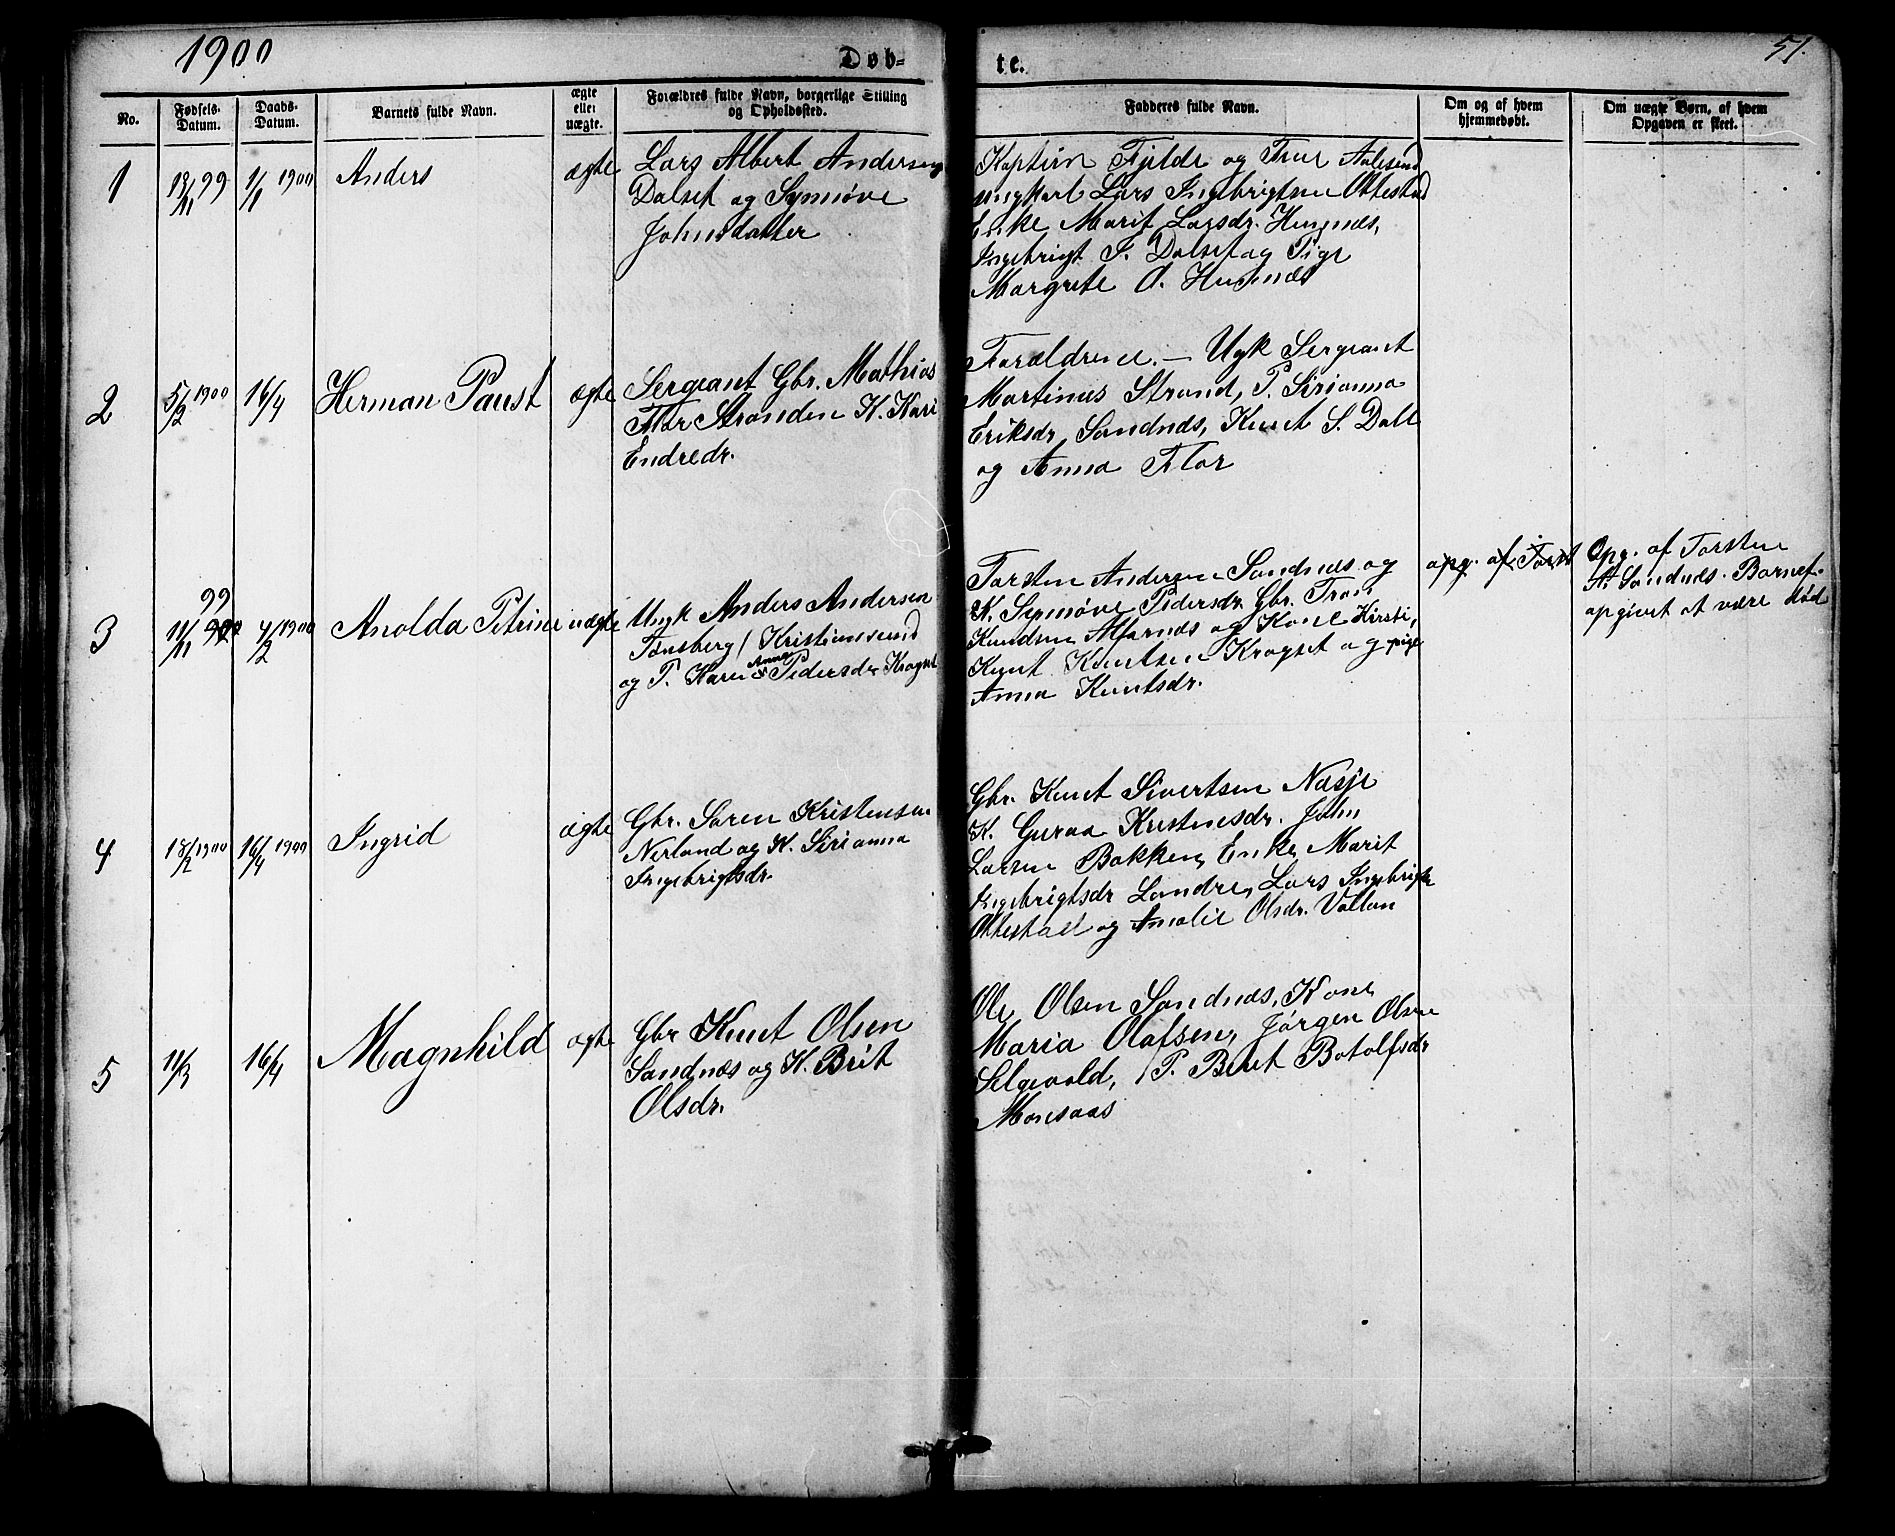 1900
Døb-
te.
51.
No.
Fødsels-
Datum.
Daabs-
Datum.
Barnets fulde Navn.
ægte
eller
uægte.
Forældres fulde Navn, borgerlige Stilling
og Opholdssted.
Fadderes fulde Navn.
Om og af hvem
hjemmedøbt.
Om uægte Børn, af hvem
Opgaven er skeet.
1
18/11 99
1/1 1900
Anders
ægte
Lars Albert Andersen
Dalset og Synnøve
Johnsdatter
Kaptein Fjelde og Frue Aalesund
ungkarl Lars Ingebrigtsen Ottestad
Enke Marit Larsdr. Husnæs,
Ingebrigt S. Dalset og Pige
Margrete O. Husnæs
2
5/2 1900
16/4
Herman Paust
ægte
Sergeant Gbr. Mathias
Flor Stranden K. Kari
Endredr.
Forældrene. — Ugk Sergeant
Martinus Strand, P. Sirianna
Eriksdr Sandnæs, Knut S. Dall
og Anna Flor
3
99
11/11
4/2 1900
Anolda Petrine
uægte
Ungk Anders Andersen
Tønsberg / Kristiansund
og P. Karen Anna Pedersdr Kragset
Torsten Andersen Sandnæs og
K. Synnøve Pedersdr. Gbr. Trond
Knudsen Alfarnæs og Kone Kirsti,
Knut Knutsen Kragset og pige
Anna Knutsdr.
opg. af Torst
Opg. af Torsten
A. Sandnæs. Barnef.
opgivet at være død
4
18/2 1900
16/4 1900
Ingrid
ægte
Gbr. Søren Kristensen
Nerland og K. Sirianna
Ingebrigtsdr.
Gbr. Knut Sivertsen Næsje
K. Guraa Kristensdr. John
Larsen Bakken, Enke Marit
Ingebrigtsdr Landre, Lars Ingebrigts
Ottestad og Amalie Olsdr. Vallan
5
11/3
16/4
Magnhild
ægte
Gbr Knut Olsen
Sandnæs og K. Brit
Olsdr.
Ole Olsen Sandnæs, Kone
Maria Olafsen, Jørgen Olsen
Selgevold, P. Beret Botolfsdr
Monsaas